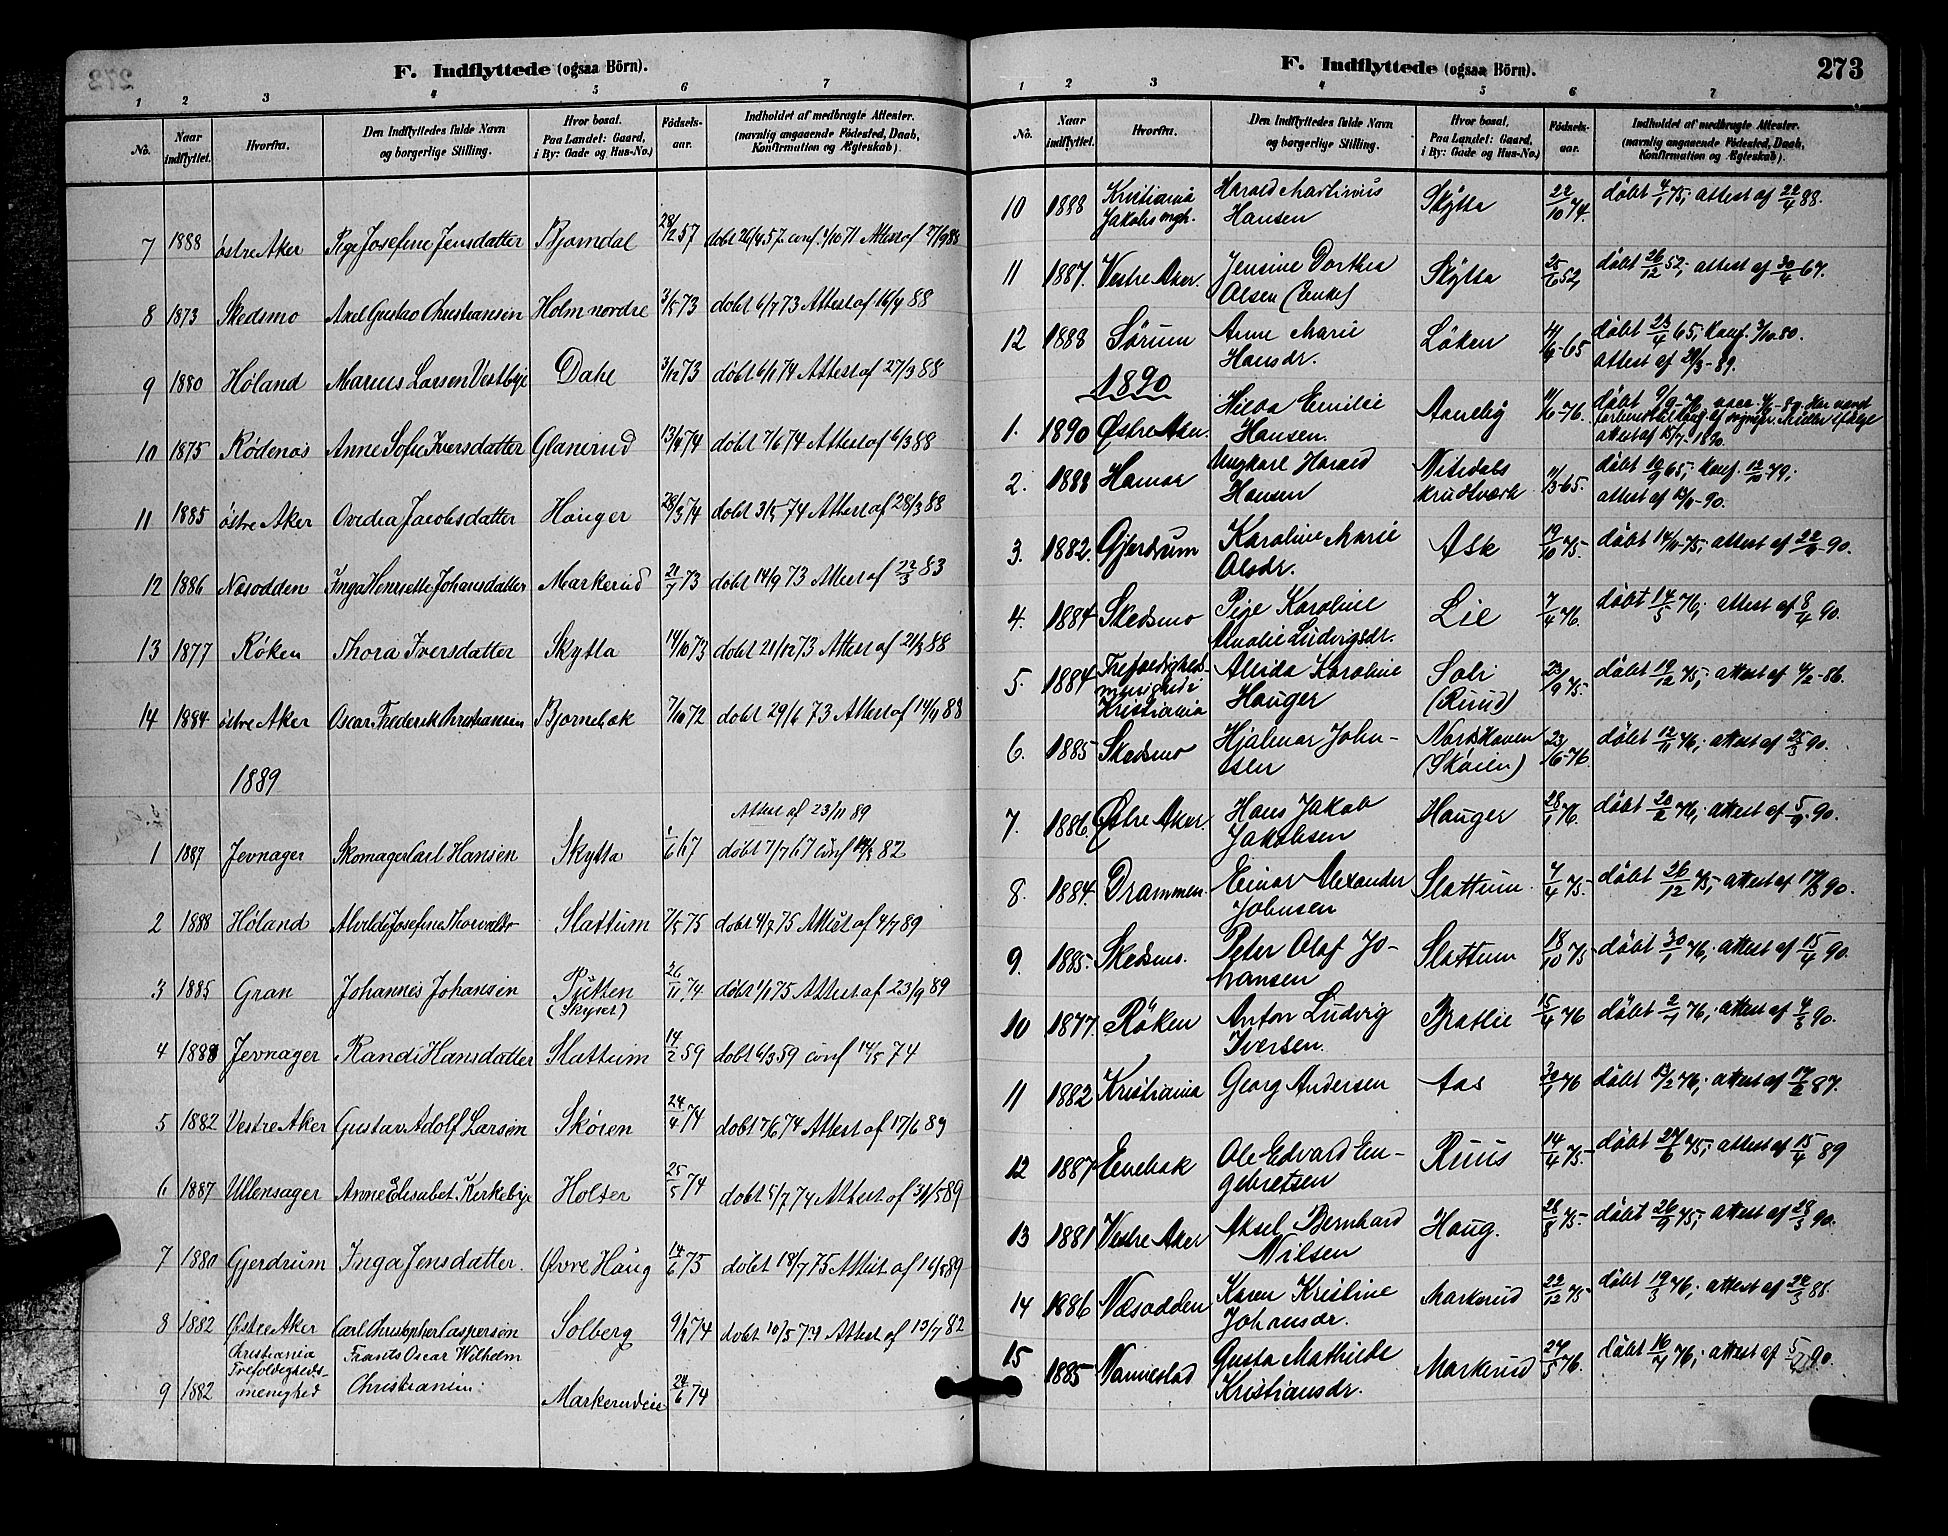 F. Indflyttede (ogsaa Börn).
1 2 3 4 5 6 7
No. Naar indflyttet. Hvorfra. Den Indflyttedes fulde Navn og borgerlige Stilling. Hvor bosat. Paa Landet: Gaard, i By: Gade og Hus-No.) Födselsaar. Indholdet af medbragte Attester. (navnlig angaaende Födested, Daab, Konfirmation og Ægteskab).
7 1888 östre Aker Pige Josefine Jensdatter Bjorndal 28/12 57 döbt 26/4 57 conf 1/10 71 Attest af 27/9 88
8 1873 Skedsmo Axel Gustav Christiansen Holm nordre 3/5 73 döbt 6/7 73 Attest af 16/4 88
9 1880 Höland Marius Larsen Vestbye Dahl 3/12 73 döbt 6/1 74 Attest af 27/3 88
10 1875 Rödenes Anne Sofie Iversdatter Glanerud 13/4 74 döbt 7/6 74 Attest af 6/3 88
11 1885 östre Aker Ovedia Jacobsdatter Hauger 28/3 74 döbt 31/5 74 Attest af 28/3 88
12 1886 Nesodden Inga Henriette Johansdatter Markerud 21/7 73 döbt 14/9 73 Attest af 22/3 83
13 1877 Röken Thora Iversdatter Skytta 14/10 73 döbt 21/12 73 Attest af 21/3 88
14 1884 östre Aker Oscar Frederik Christiansen Bjornebæk 7/10 72 döbt 29/6 73 Attest af 14/11 88
1889
Attest af 23/11 89
1 1887 Jevnager Skomager Carl Hansen Skytta 1/6 67 döbt 7/7 67 conf 14/5 82
2 1888 Höland Alvilde Josefine Thorvaldsr Slattum 7/5 75 döbt 4/7 75 Attest af 4/7 89
3 1885 Gran Johannes Johansen Putten 26/11 74 döbt 1/1 75 Attest af 23/9 89
4 1888 Jevnager Randi Hansdatter Slattum 14/2 59 döbt 6/3 59 conf 14/5 74
5 1882 Vestre Aker Gustav Adolf Larsen Skören 24/4 74 döbt 7/6 74 Attest af 17/6 89
6 1887 Ullensager Anne Elisabet Kirkebye Holter 25/5 74 döbt 5/7 74 Attest af 31/5 89
7 1880 Gjerdrum Inga Jensdatter. Övre Haug 14/6 75 döbt 18/7 75 Attest af 16/5 89
8 1882 Östre Aker Carl Christopher Caspersen Solberg 9/4 74 döbt 10/5 74 Attest af 13/7 82
Christiania Frants Oscar Wilhelm
Trefoldigheds-
9 1882 menighed Christiansen Markerudeie 24/6 74
F. Indflyttede (ogsaa Börn).
273
1 2 3 4 5 6 7
No. Naar indflyttet. Hvorfra. Den Indflyttedes fulde Navn og borgerlige Stilling. Hvor bosat, Paa Landet: Gaard, i By: Gade og Hus-No.) Födselsaar. Indholdet af medbragte Attester. (navnlig angaaende Födested, Daab, Konfirmation og Ægteskab).
10 1888 Kristiania Harald Martinius Skytta 22/10 74. döbt 4/1 75; attest af 22/4 88.
Jakobs mgh. Hansen
11 1887. Vestre Aker. Jensine Dorthea Skytta 25/6 52, döbt 26/12 52; attest af 30/4 67.
Olsen (Enke)
12 1888 Sörum Anne Marie Löken 4/4-65 döbt 23/4 65; konf. 3/10 80.
Hansdr. attest af 21/3-89.
1890
1. 1890 Östre Aker. Hilda Emilie Aaneby 11/6-76.
Hansen. attest af 15/7 1890.
2. 1888 Hamar Ungkarl Harald Nitedals 11/3-65. döbt 10/9 65; konf. 12/10 79;
Hansen Krudtværk attest af 12/4-90.
3. 1882. Gjerdrum Karoline Marie Ask 19/10 75- döbt 14/11-75; attest af 22/4 90.
Olsdr.
4. 1884. Skedsmo Pige Karoline Lie 7/4 76. döbt 14/5 76; attest af 8/4 90.
Amalie Ludvigsdr.
5. 1884. Trefoldigheds- Alvida Karoline Soli 23/9 75. döbt 19/12 75; attest af 4/2-86.
menighed i Hauger (Ruud)
Kristiania
6. 1885 Skedsmo Hjalmar John- Nordhaven 23/6-76. döbt 12/11 76; attest af 25/3 90.
sen (Skören)
7. 1886. Östre Aker. Hans Jakob Hauger 28/1 76. döbt 20/2 76; attest af 5/9 90.
Jakobsen
8. 1884. Drammen. Einar Alexander Slattum. 7/4 75- döbt 26/12 75; attest af 17/3 90.
Johnsen
9. 1885. Skedsmo. Peter Olaf Jo- Slattum 18/10 75 döbt 30/1 76; attest af 15/4 90.
hansen
10 1877. Röken Anton Ludvig Bratlie 15/4 76 döbt 2/7 76; attest af 4/3 90.
Iversen.
11 1882 Kristiania Georg Andersen Aas 30/1 76 döbt 13/2 76; attest af 17/2 87.
12 1887 Enebak Ole Edvard En- Ruus 14/4 75- döbt 27/6 75; attest af 15/4 89
gebretsen
13 1881 Vestre Aker Aksel Bernhard Haug. 28/8 75- döbt 26/9 75; attest af 28/3 90.
Nilsen
14 1886 Næsodden Karen Kristine Markerud 22/12 75- döbt 19/3 76; attest af 22/3 88.
Johansdr.
15 1885 Nannestad Gusta Mathilde Markerud 24/5 76. döbt 16/7 76; attest af
Kristiansdr.